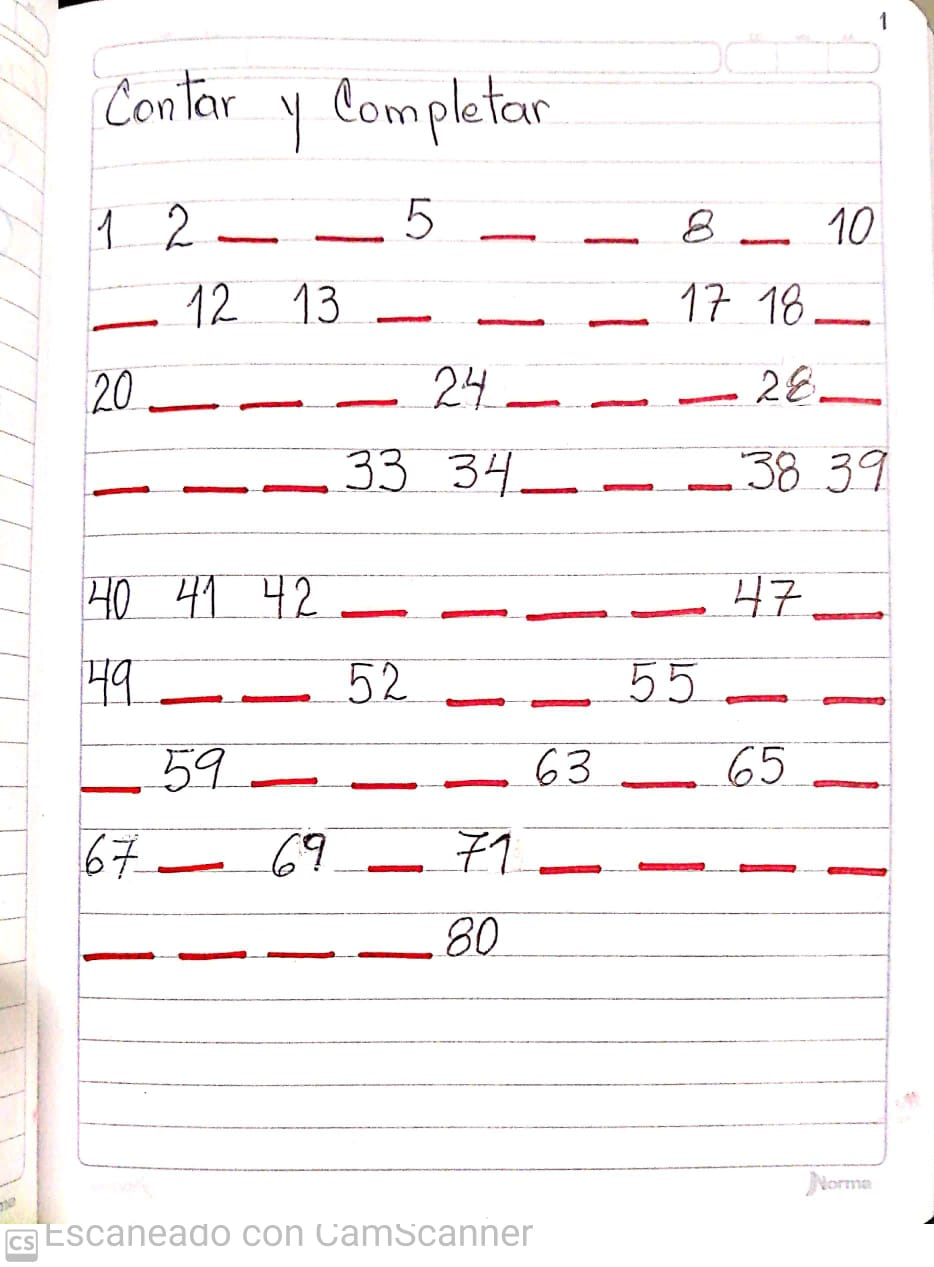 1
Contar y Completar
1 2 _ _ 5 _ _ 8 _ 10
_ 12 13 _ _ _ 17 18 _
20 _ _ _ 24 _ _ _ 28 _
_ _ _ 33 34 _ _ _ 38 39
40 41 42 _ _ _ _ 47 _
49 _ _ 52 _ _ 55 _ _
_ 59 _ _ _ 63 _ 65 _
67 _ 69 _ 71 _ _ _ _
_ _ _ _ 80
Norma
CS Escaneado con CamScanner